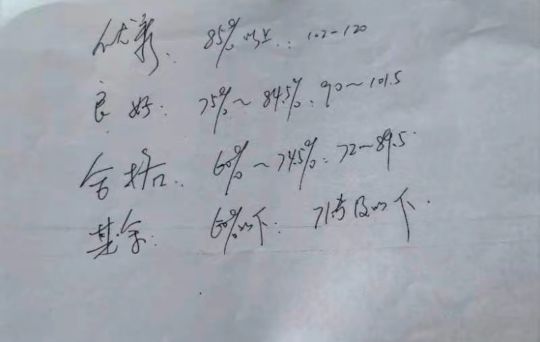 优秀: 85%以上: 102-120
良好: 75%~84.5%: 90~101.5
合格: 60%~74.5%: 72~89.5
其余: 60%以下: 71.5及以下.